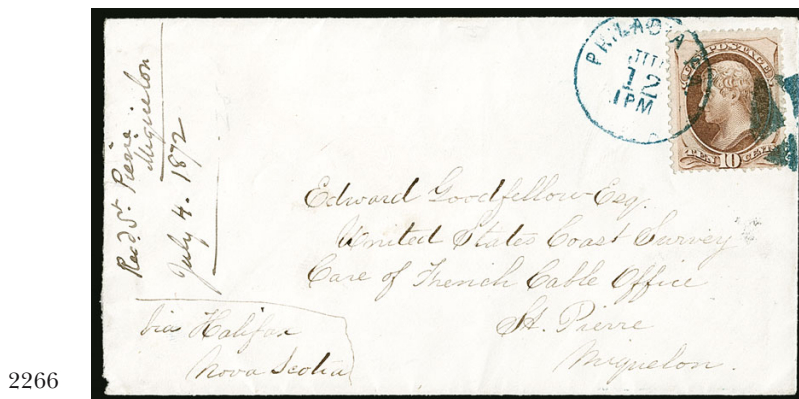 Recd. St. Pierre
Miquelon
July 4. 1872
PHILAD'A
12
1 PM
U.S. POSTAGE
TEN 10 CENTS
Edward Goodfellow Esq.
United States Coast Survey
Care of French Cable Office
St. Pierre
Miquelon.
via Halifax
Nova Scotia
2266